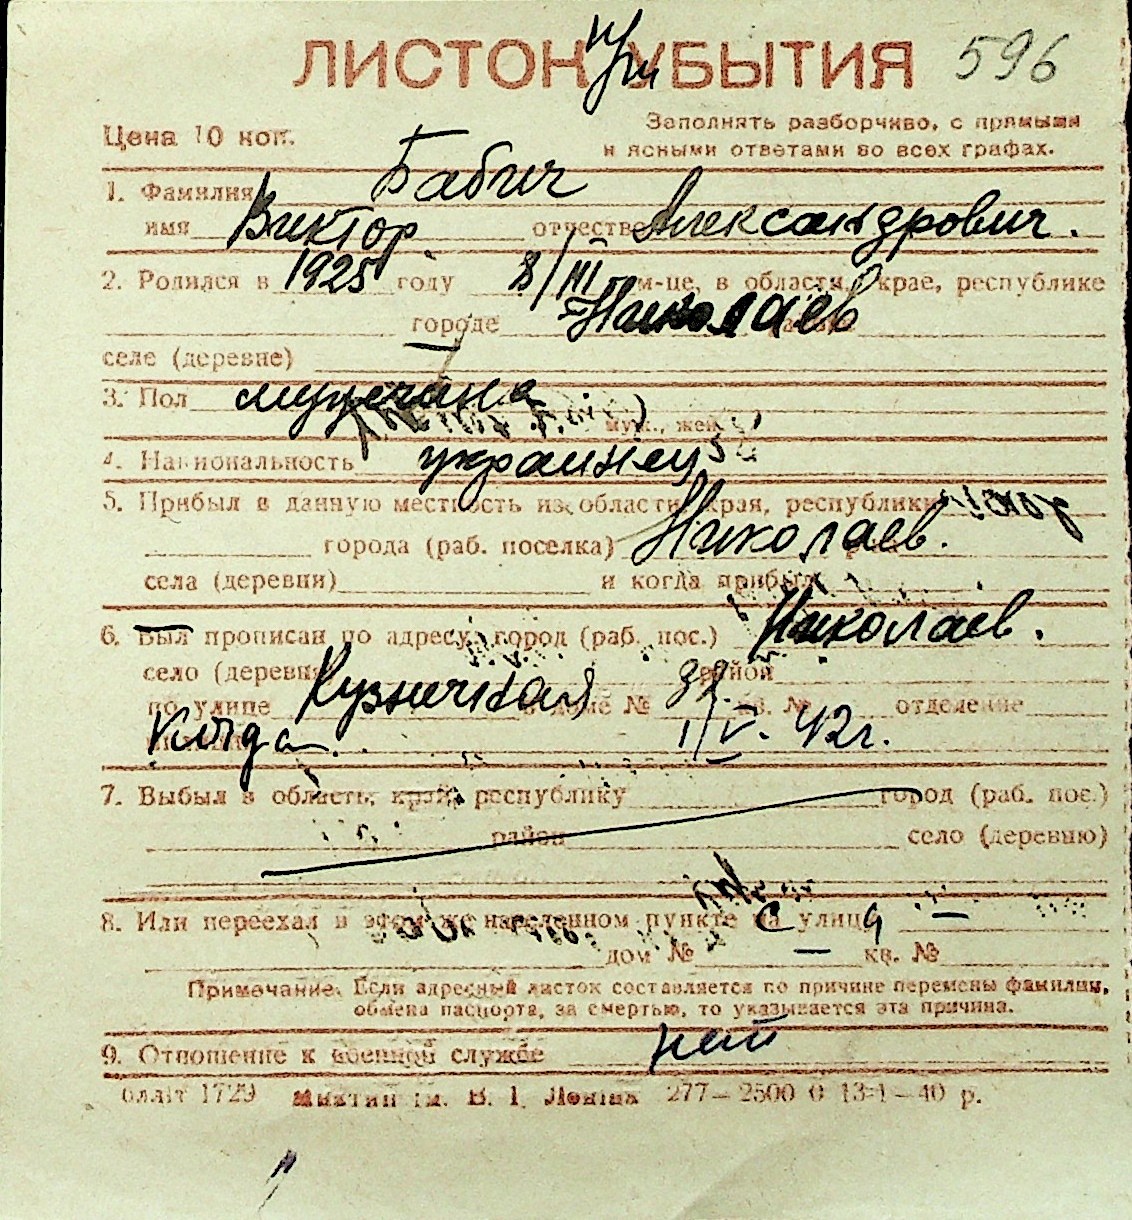 ЛИСТОК УБЫТИЯ 596
Цена 10 коп.
Заполнять разборчиво, с прямыми
и ясными ответами во всех графах.
1. Фамилия Бабич
имя Виктор отчество Александрович.
2. Родился в 1925 году 8/III м-це, в области, крае, республике
городе Николаев
селе (деревне)
3. Пол мужчина
муж., жен.
4. Национальность украинец
5. Прибыл в данную местность из области, края, республики
города (раб. поселка) Николаев.
села (деревни) и когда прибыл
6. Был прописан по адресу: город (раб. пос.) Николаев.
село (деревня) район
по улице Кузнечная в доме № кв. № отделение
Когда 1/V. 42г.
7. Выбыл в область, край, республику город (раб. пос.)
район село (деревню)
8. Или переехал в этом же населенном пункте на улицу
дом № кв. №
Примечание. Если адресный листок составляется по причине перемены фамилии,
обмена паспорта, за смертью, то указывается эта причина.
9. Отношение к военной службе нет
олліт 1729 ім. В. І. Леніна 277—2500 0 13-1—40 р.